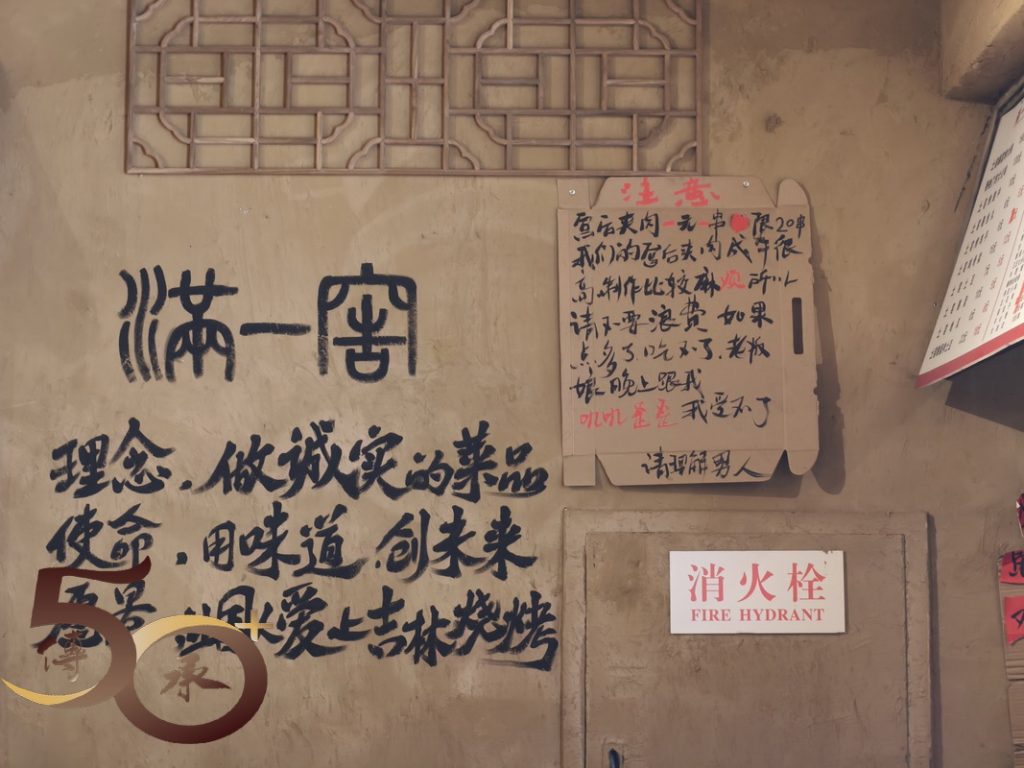 滿一窖
理念.做诚实的菜品
使命.用味道.创未来
景 国人爱上吉林烧烤
注意
后夹肉一元一串 限20串
我们的 后夹肉成本很
高.制作比较麻烦 所以
请不要浪费 如果
点多了吃不了.老板
娘晚上跟我
叽叽歪歪 我受不了
请理解男人
消火栓
FIRE HYDRANT
50+
傳承